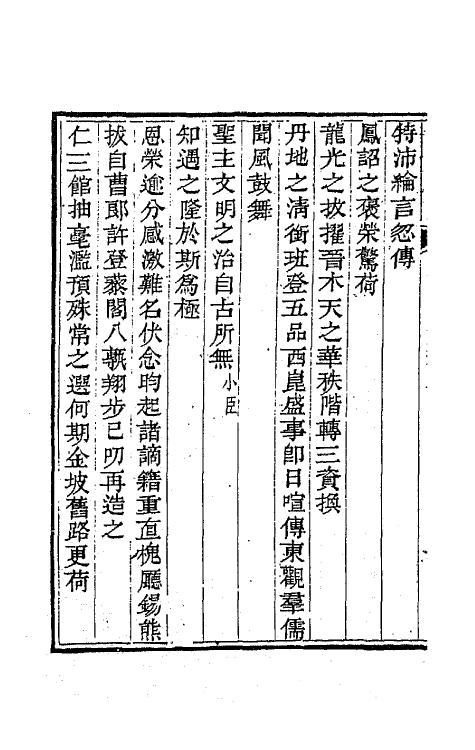 特沛綸言忽傳
鳳詔之褒榮驚荷
龍光之拔擢晋木天之華秩階轉三資換
丹地之淸銜班登五品西崑盛事卽日喧傳東觀羣儒
聞風鼓舞
聖主文明之治自古所無小臣
知遇之隆於斯爲極
恩榮逾分感激難名伏念昀起諸謫籍重直槐廳錫熊
拔自曹郞許登藜閣八甎翔步已叨再造之
仁三館抽毫濫預殊常之選何期金坡舊路更荷